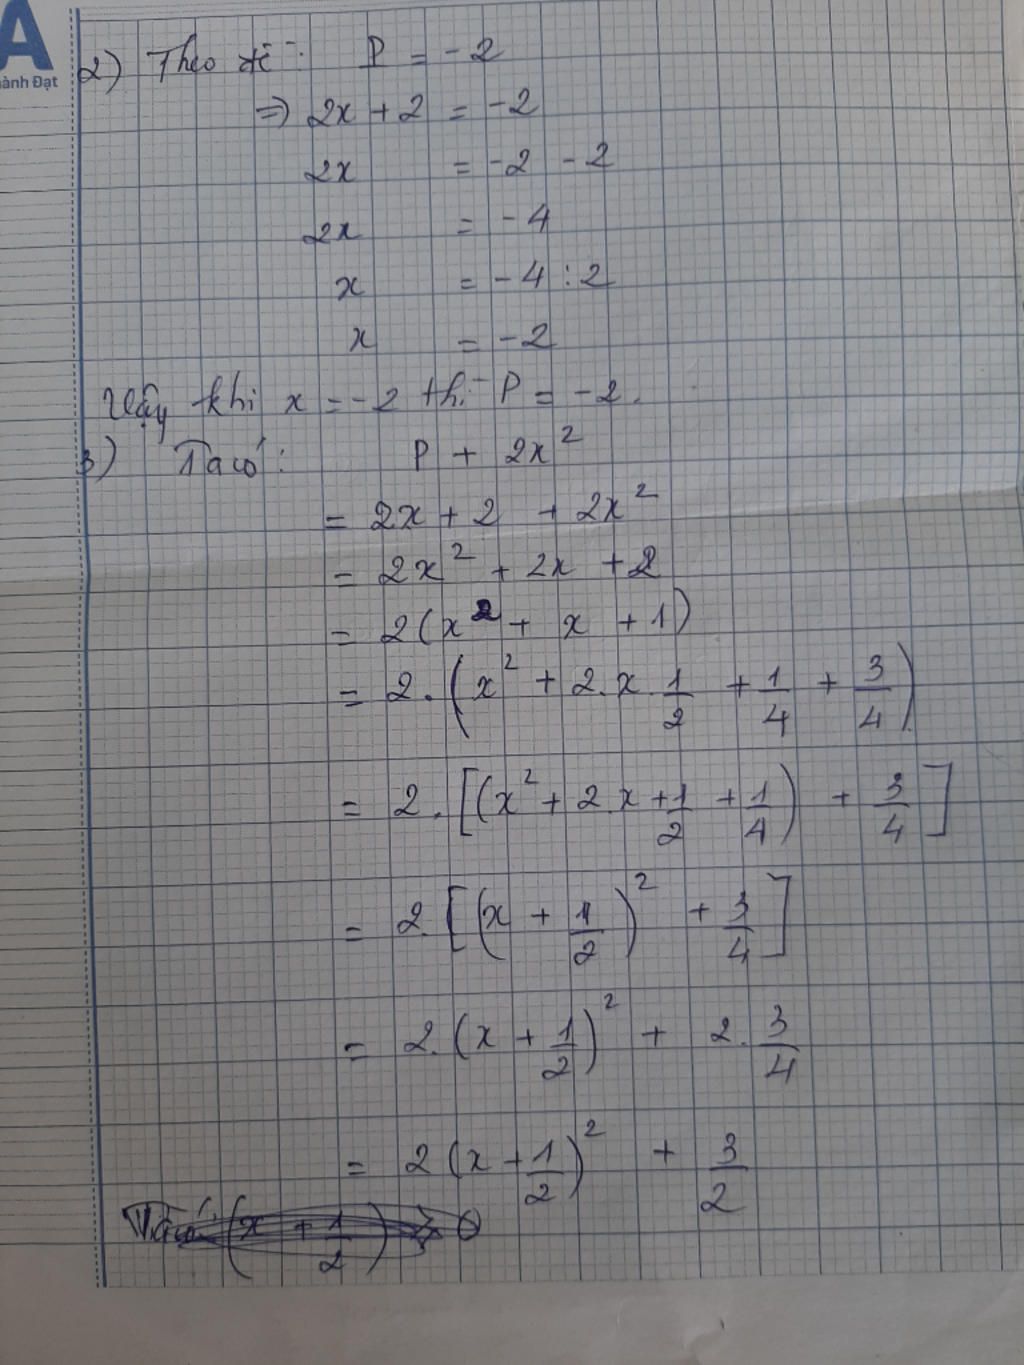 A
ành Đạt
2) Theo đề: P = -2
=> 2x + 2 = -2
2x = -2 - 2
2x = -4
x = -4 : 2
x = -2
Vậy khi x = -2 thì P = -2.
3) Ta có: P + 2x²
= 2x + 2 + 2x²
= 2x² + 2x + 2
= 2(x² + x + 1)
= 2.(x² + 2.x.1/2 + 1/4 + 3/4)
= 2.[(x² + 2.x+1/2 + 1/4) + 3/4]
= 2.[(x + 1/2)² + 3/4]
= 2.(x + 1/2)² + 2.3/4
= 2(x + 1/2)² + 3/2
(x + 1/2)